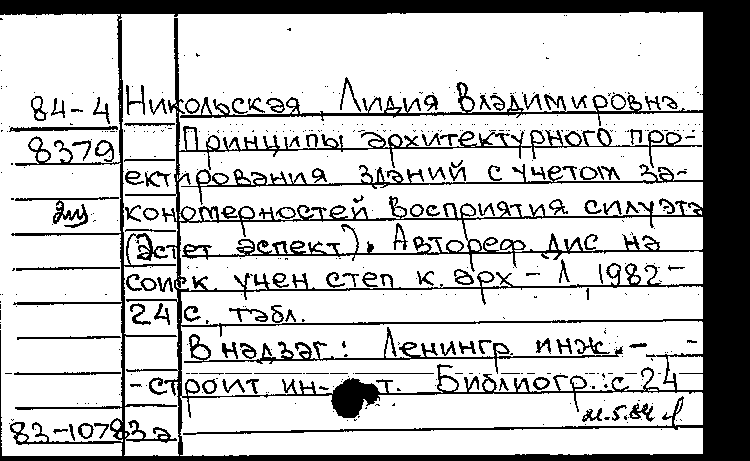 84-4 Никольская, Лидия Владимировна
8379 Принципы архитектурного про-
ектирования зданий с учетом за-
кономерностей восприятия силуэта
(Эстет аспект). Автореф. дис на
соиск. учен. степ к. арх - Л, 1982 -
24 с., табл.
В надзаг.: Ленингр инж.- -
-строит ин- т. Библиогр.: с 24
83-10783а